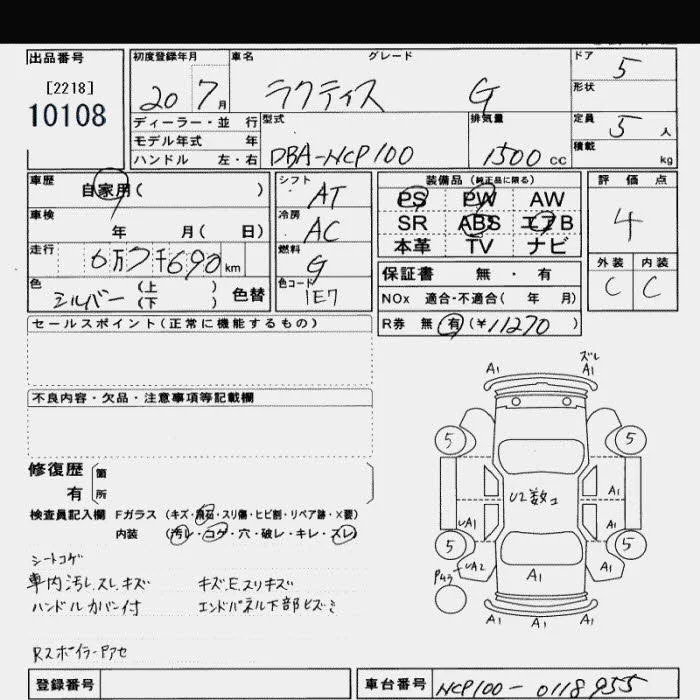 出品番号
[2218]
10108
初度登録年月 車名 グレード
20 7月 ラクティス G
ドア 5
形状
ディーラー・並 行
モデル年式 年
ハンドル 左・右
型式 DBA-NCP100
排気量 1500 cc
定員 5 人
積載 kg
車歴 自家用( )
車検 年 月( 日)
走行 6万7千690 km
色 シルバー (上 ) (下 ) 色替
シフト AT
冷房 AC
燃料 G
色コード 1E7
装備品 (純正品に限る)
PS PW AW
SR ABS エアB
本革 TV ナビ
保証書 無・有
NOx 適合・不適合( 年 月)
R券 無 有 (¥11270 )
評価点
4
外装 内装
C C
セールスポイント(正常に機能するもの)
不良内容・欠品・注意事項等記載欄
修復歴 箇
有 所
検査員記入欄 Fガラス (キズ・飛石・スリ傷・ヒビ割・リペア跡・×要)
内装 (汚レ・コゲ・穴・破レ・キレ・スレ)
シートコゲ
車内汚レ.スレ.キズ キズ.E.スリキズ
ハンドルカバー付 エンドパネル下部ヒズミ
Rスポイラー
ズレ
A1 A1
5 5
U2数コ
A1
UA1 A1
5 5
UA2 A1 A1
A1 A1 A1
登録番号
車台番号 NCP100-0118955